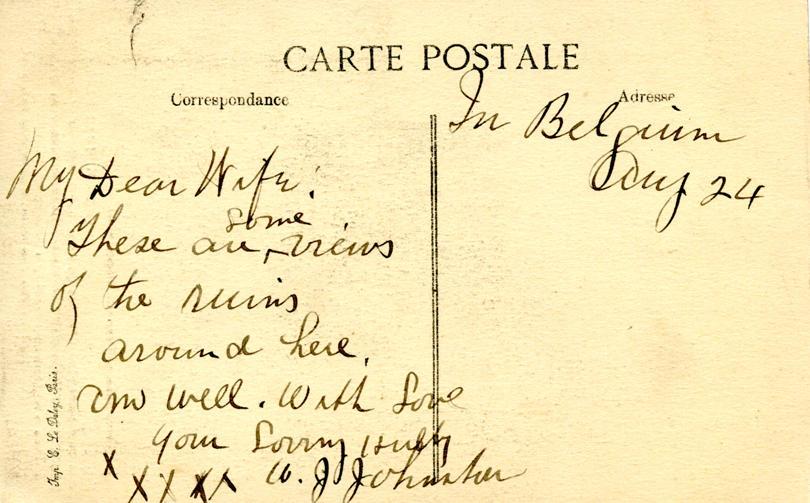 CARTE POSTALE
Correspondance
Adresse
In Belgium
Aug 24
My Dear Wife:
some
These are views
of the ruins
around here.
am well. With Love
your Loving Hubby
W. J Johnston
x x x x x
Imp. E. Le Deley, Paris.